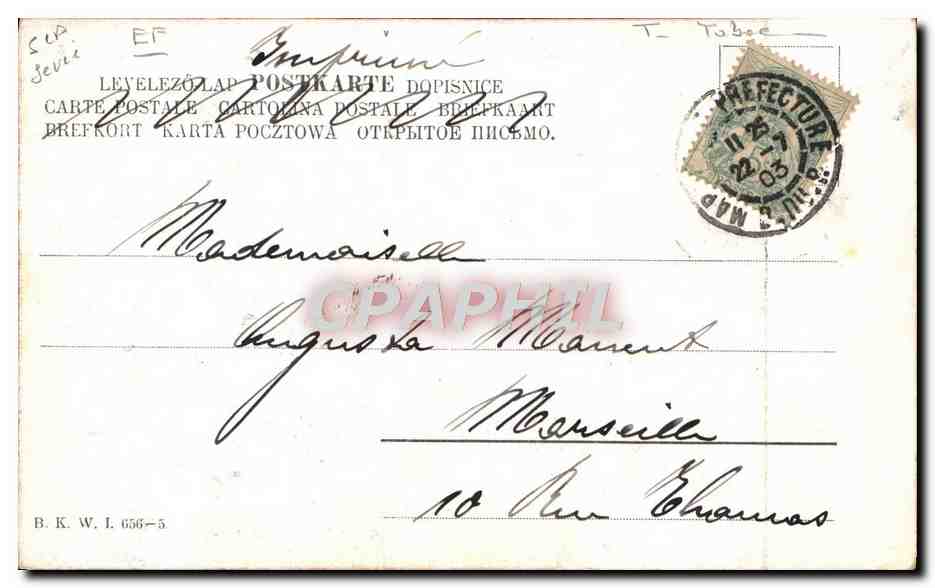 EF
Imprimé
LEVELEZŐ-LAP POSTKARTE DOPISNICE
CARTE POSTALE CARTOLINA POSTALE BRIEFKAART
BREFKORT KARTA POCZTOWA ОТКРЫТОЕ ПИСЬМО.
PREFECTURE
11 25
22 7
03
Mademoiselle
CPAPHIL
Augusta
Marseille
10 Rue Thomas
B. K. W. I. 656-5